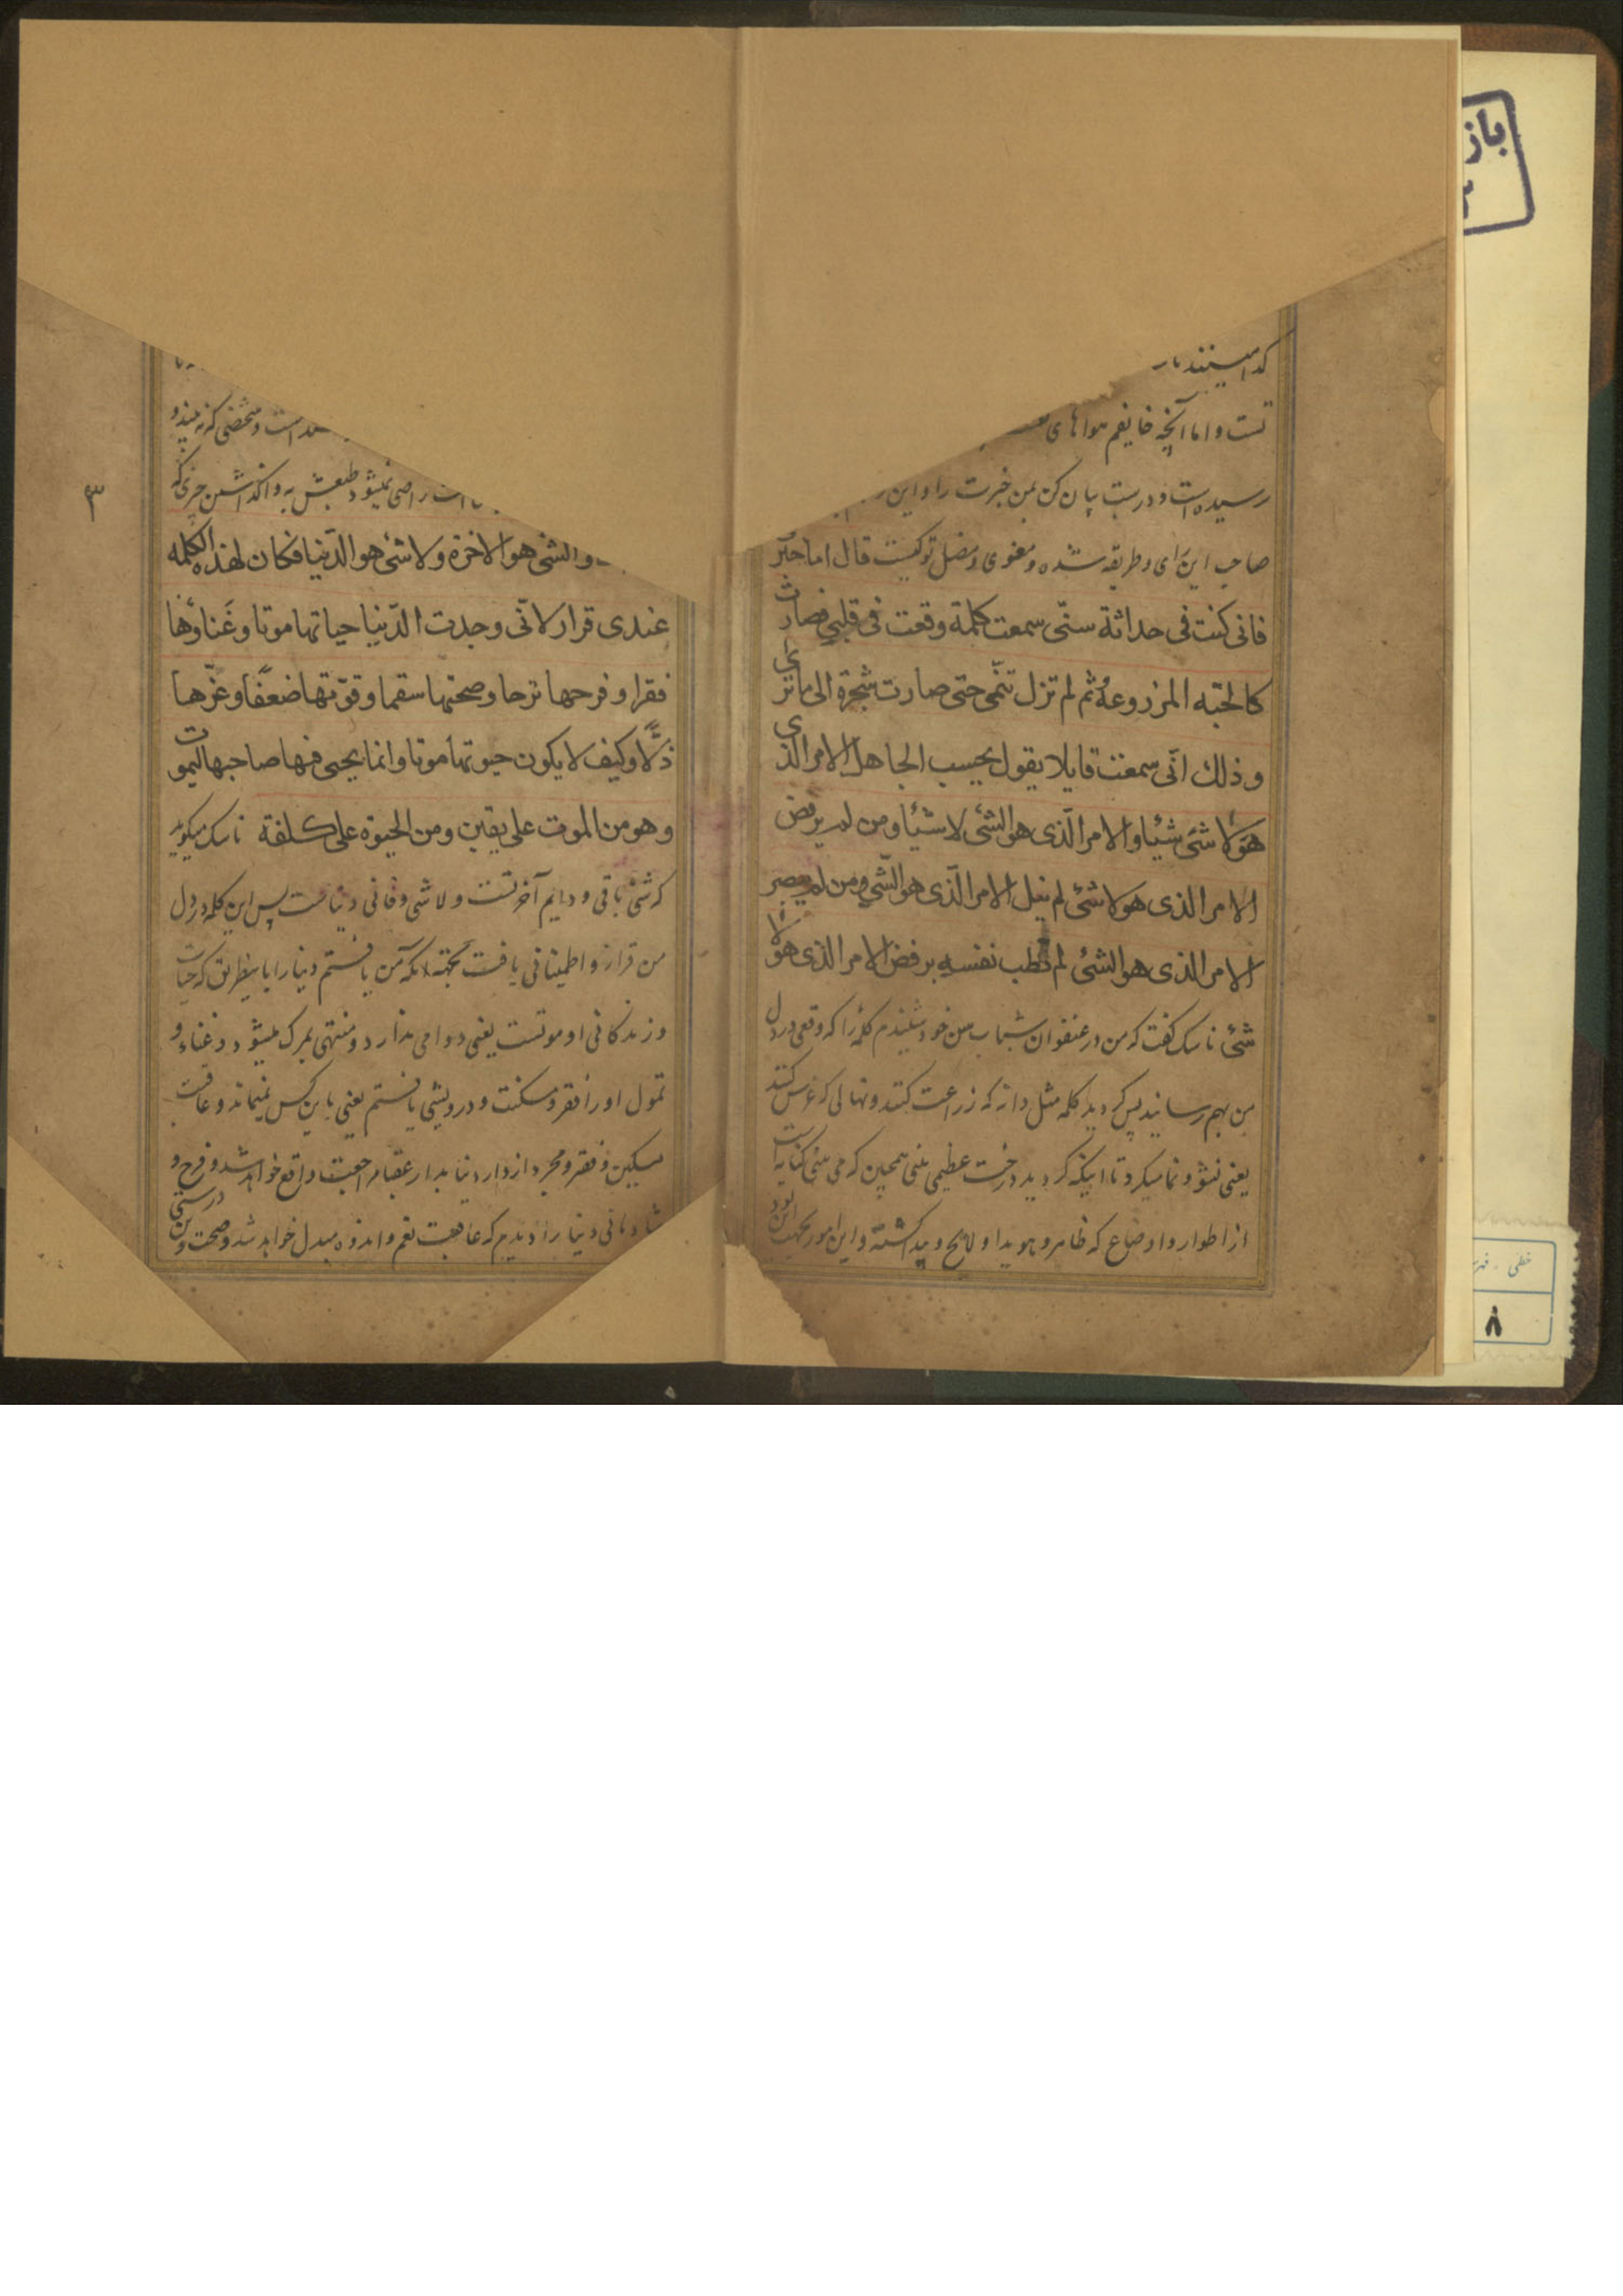 تست و اما آنچه خایفم هواهای
رسیده است و درست بیان کن بمن خبرت را و این
صاحب این رای و طریقه شده و مغوی و مضل تو کیست قال اما خبری
فانی کنت فی حداثة سنّی سمعت کلمة وقعت فی قلبی فصارت
کالحبّه المزروعهُ ثم لم تزل تنمی حتی صارت شجرة الی ما تری
و ذلك انّی سمعت قایلا یقول یحسب الجاهل الامر الذی
هو لا شیَ شیئا و الامر الّذی هو الشیُ لا شیئا و من لم یرفض
الامر الذی هو لا شئ لم ینل الامر الّذی هو الشّی و من لم یبصر
الامر الذی هو الشئ لم تطب نفسه برفض الامر الذی هو لا
شئ ناسک گفت که من در عنفوان شباب سن خود شنیدم کلمهٔ را که وقعی در دل
من بهم رسانید پس گردید کلمه مثل دانه که زراعت کنند و نهالی که غرس کنند
یعنی نشو و نما میکرد تا اینکه گردید درخت عظیمی یعنی همچنین که می بینی کنایه است
از اطوار و اوضاع که ظاهر و هویدا و لایح و پیدا گشته و این امور بجهت این بود
۳
است و شخصی که نه بیند و
راضی نمیشود طبعش به واگذاشتن چیزی که
و الشی هو الاخرة و لا شئ هو الدّنیا فکان لهذه الکلمه
عندی قرار لانّی وجدت الدّنیا حیاتها موتا و غَناؤها
فقرا و فرحها ترحا و صحتها سقما و قوّتها ضعفًا و عزّها
ذلًّا و کیف لا یکون حیوتها موتا و انما یحیی فیها صاحبها لیموت
و هو من الموت علی یقین و من الحیوة علی کلفة ناسک میگوید
که شئ باقی و دایم آخرتست و لا شی و فانی دنیا است پس این کلمه در دل
من قرار و اطمینانی یافت بجهته آنکه من یافتم دنیا را باینطریق که حیات
و زندگانی او موتست یعنی دوامی ندارد و منتهی بمرک میشود و غناء و
تمول او را فقر و مسکنت و درویشی یافتم یعنی باین کس نمیماند و عاقبت
مسکین و فقر و مجرد از دار دنیا بدار عقبا مراجعت واقع خواهد شد و فرح و
شادمانی دنیا را دیدم که عاقبت بغم و اندوه مبدل خواهد شد و صحت و درستی